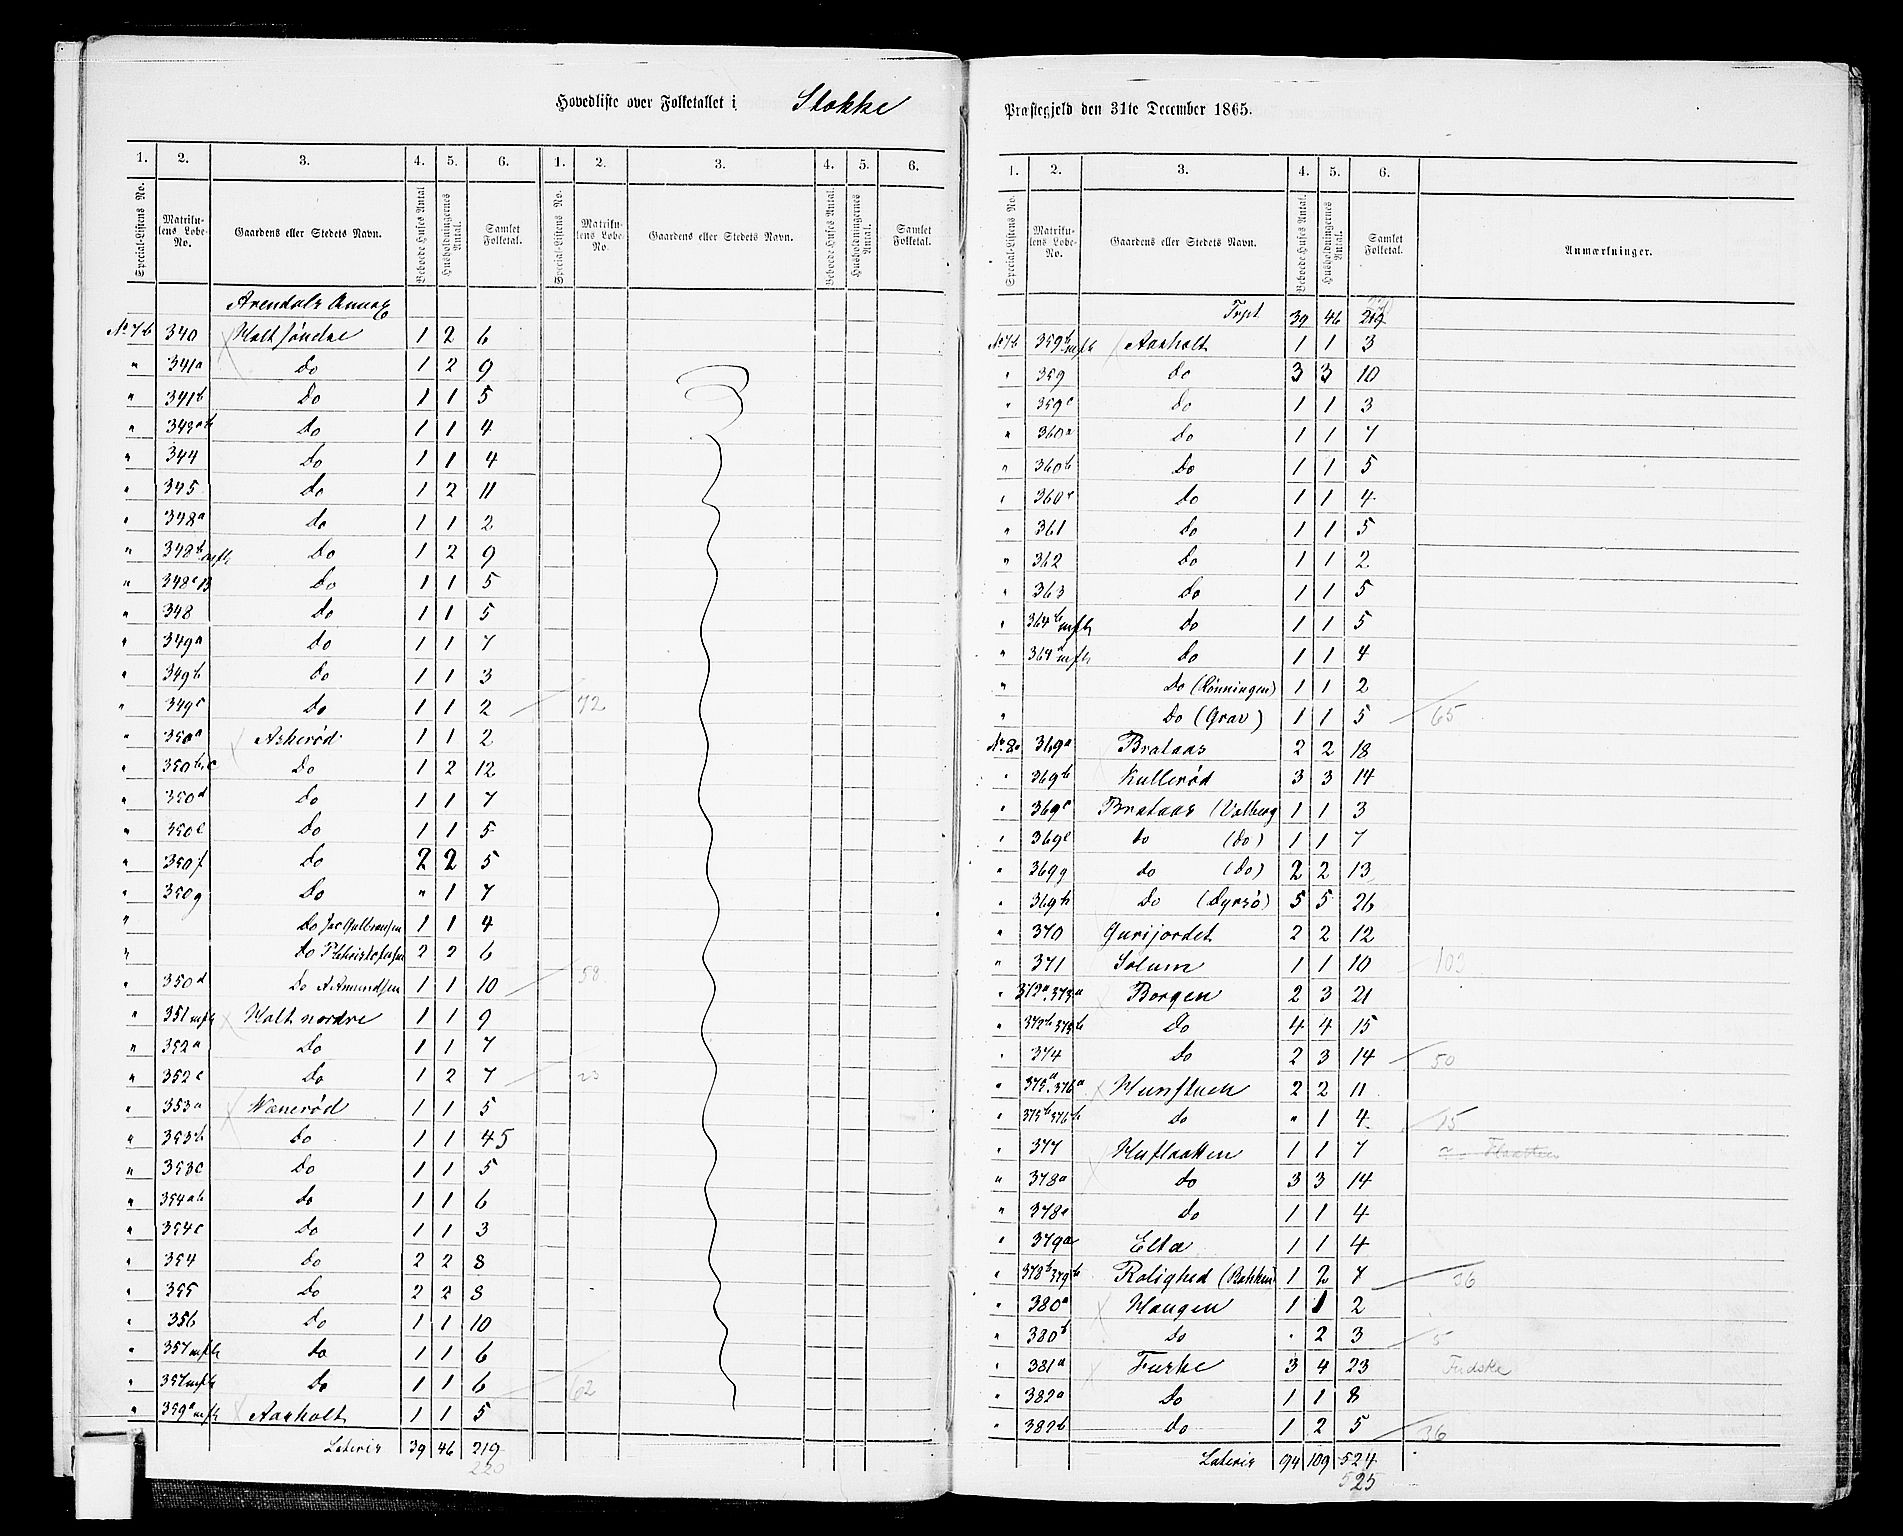 Hovedliste over Folketallet i Stokke
1. 2. 3. 4. 5. 6. 1. 2. 3. 4. 5. 6.
Special-Listens No. Matrikulens Lobe-No. Gaardens eller Stedets Navn. Beboede Huses Antal. Husholdningernes Antal. Samlet Folketal. Special-Listens No. Matrikulens Lobe-No. Gaardens eller Stedets Navn. Beboede Huses Antal. Husholdningernes Antal. Samlet Folketal.
Arendals Annex
No 7b 340 Holt søndre 1 2 6
" 341a Do 1 2 9
" 341b Do 1 1 5
" 343ab Do 1 1 4
" 344 Do 1 1 4
" 345 Do 1 2 11
" 348a Do 1 1 2
" 348b mfl Do 1 2 9
" 348c B Do 1 1 5
" 348 Do 1 1 5
" 349a Do 1 1 7
" 349b Do 1 1 3
" 349c Do 1 1 2 72
" 350a Askerød 1 1 2
" 350b.c Do 1 2 12
" 350d Do 1 1 7
" 350e Do 1 1 5
" 350f Do 2 2 5
" 350g Do " 1 7
" Do Jac Gulbransen 1 1 4
" Do 2 2 6
" 350d Do A Amundsen 1 1 10 58
" 351 mfl Holt nordre 1 1 9
" 352a Do 1 1 7
" 352c Do 1 2 7 23
" 353a Nænerød 1 1 5
" 353b Do 1 1 45
" 353c Do 1 1 5
" 354ab Do 1 1 6
" 354c Do 1 1 3
" 354 Do 2 2 8
" 355 Do 2 2 8
" 356 Do 1 1 10
" 357 mfl Do 1 1 6
" 357 mfl Do 1 1 6 62
" 359a mfl Aarholt 1 1 5
Lateris 39 46 219
220
Præstegjeld den 31te December 1865.
1. 2. 3. 4. 5. 6.
Special-Listens No. Matrikulens Lobe-No. Gaardens eller Stedets Navn. Beboede Huses Antal. Husholdningernes Antal. Samlet Folketal. Anmærkninger.
Trpt 39 46 219
No 7b 359b mfl Aarholt 1 1 3
" 359 Do 3 3 10
" 359c Do 1 1 3
" 360a Do 1 1 7
" 360b Do 1 1 5
" 360c Do 1 1 4
" 361 Do 1 1 5
" 362 Do 1 1 2
" 363 Do 1 1 5
" 364b mfl Do 1 1 5
" 364d mfl Do 1 1 4
" Do (Rønningen) 1 1 2
" Do (Grav) 1 1 5 65
No 8a 369a Brataas 2 2 18
" 369b Kullerød 3 3 14
" 369c Brataas (Valberg 1 1 3
" 369e do (do) 1 1 7
" 369g do (do) 2 2 13
" 369h Do (Dyrsø) 5 5 26
" 370 Gurijordet 2 2 12
" 371 Solum 1 1 10 103
" 372a.373a Borgen 2 3 21
" 372b.373b Do 4 4 15
" 374 Do 2 3 14 50
" 375a.376a Hunstuen 2 2 11
" 375b.376b do " 1 4 15
" 377 Huflaatten 1 1 7 Flaatten
" 378a do 3 3 14
" 378a do 1 1 4
" 379a Elta 1 1 4
" 378b.379b Rolighed (Bakken) 1 2 7 36
" 380a Haugen 1 1 2
" 380b Do . 2 3 5
" 381a Furke 3 4 23 Fudske
" 382a Do 1 1 8
" 382b Do 1 2 5 36
Lateris 94 109 524
525